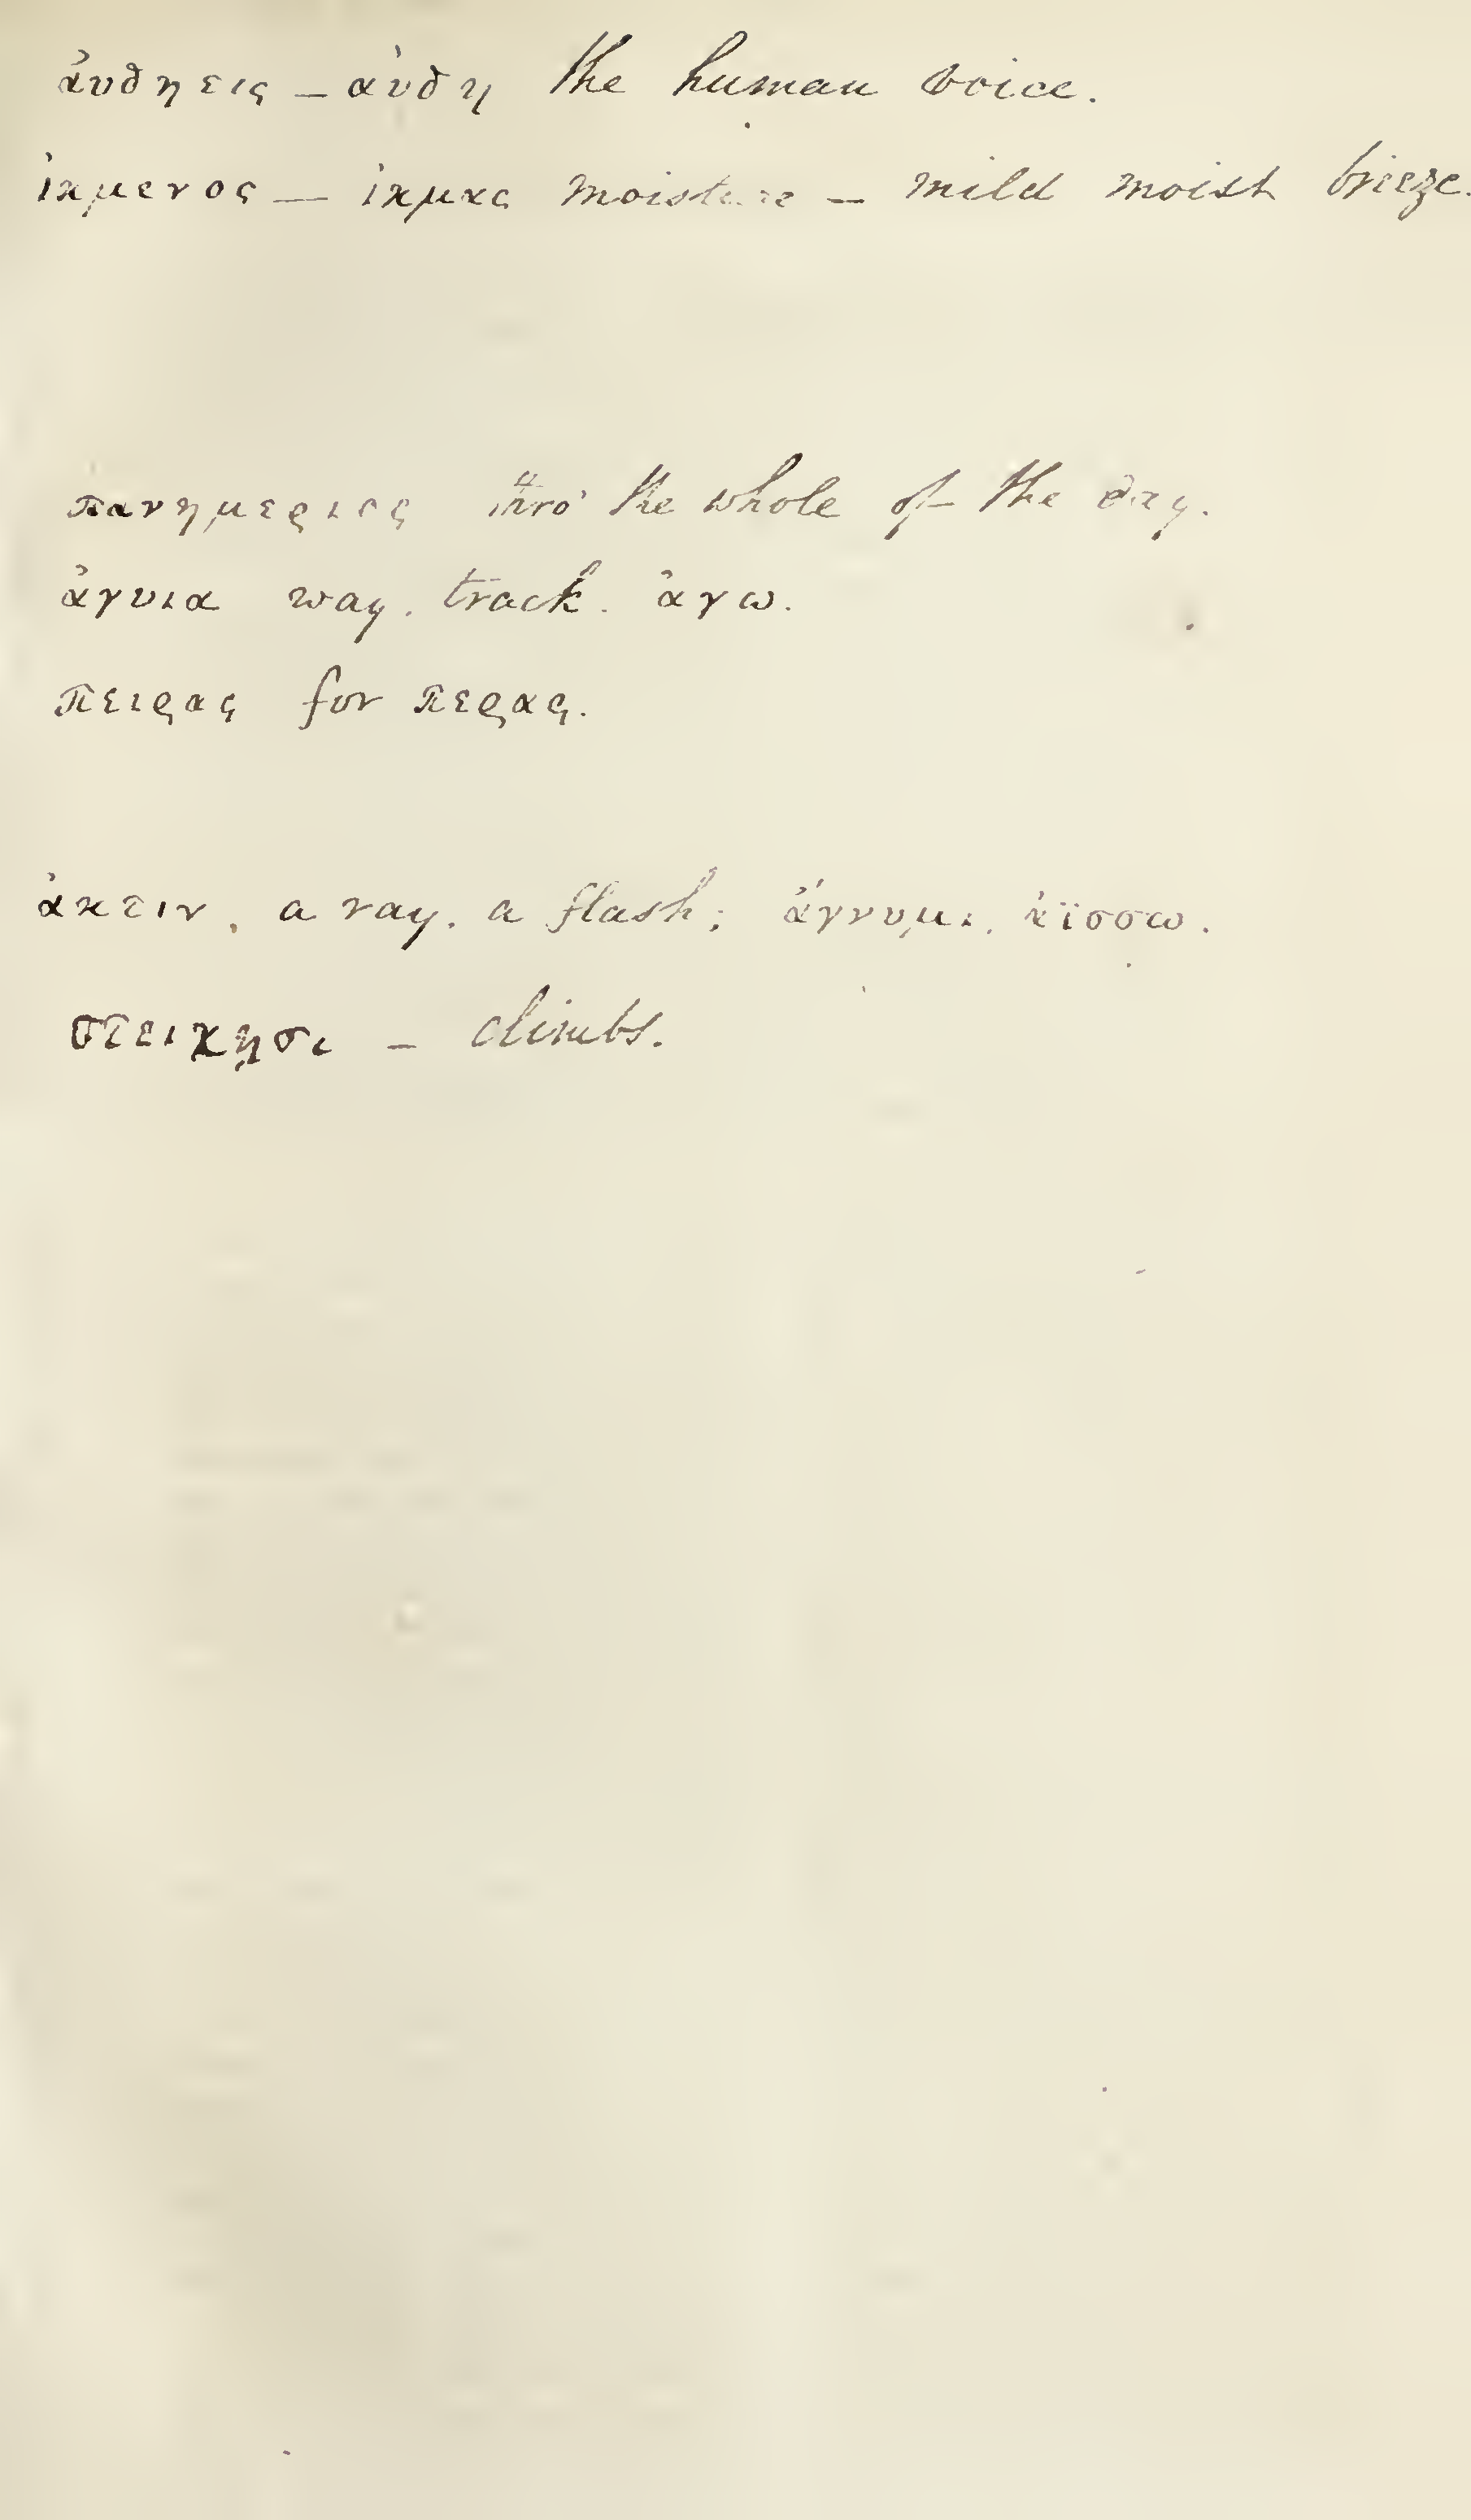 ἀυδηεις – αὐδη the human voice.
ἰκμενος — ἰκμας moisture – mild moist breeze.
πανημεριος thro' the whole of the day.
ἀγυια way. track. ἀγω.
πειρας for περας.
ἀκτιν, a ray. a flash; ἄγνυμι. ἀϊσσω.
στειχησι – climbs.